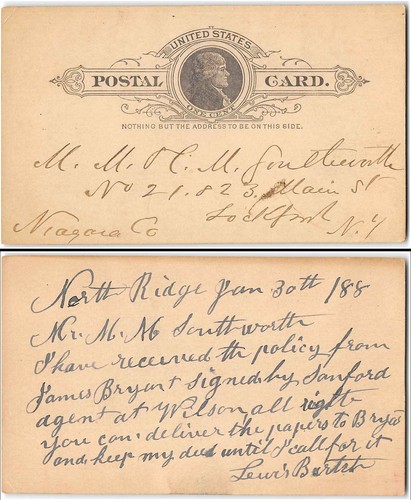 UNITED STATES
POSTAL CARD.
ONE CENT
NOTHING BUT THE ADDRESS TO BE ON THIS SIDE.
M. M. & C. M. Southworth
No 21. & 23, Main St
Lockport
Niagara Co N.Y
North Ridge Jan 30th /88
Mr. M. M Southworth
I have received th policy from
James Bryant signed by Sanford
agent at Wilson all right
you can deliver the papers to Bryant
and keep my deed until I call for it
Lewis Bartch